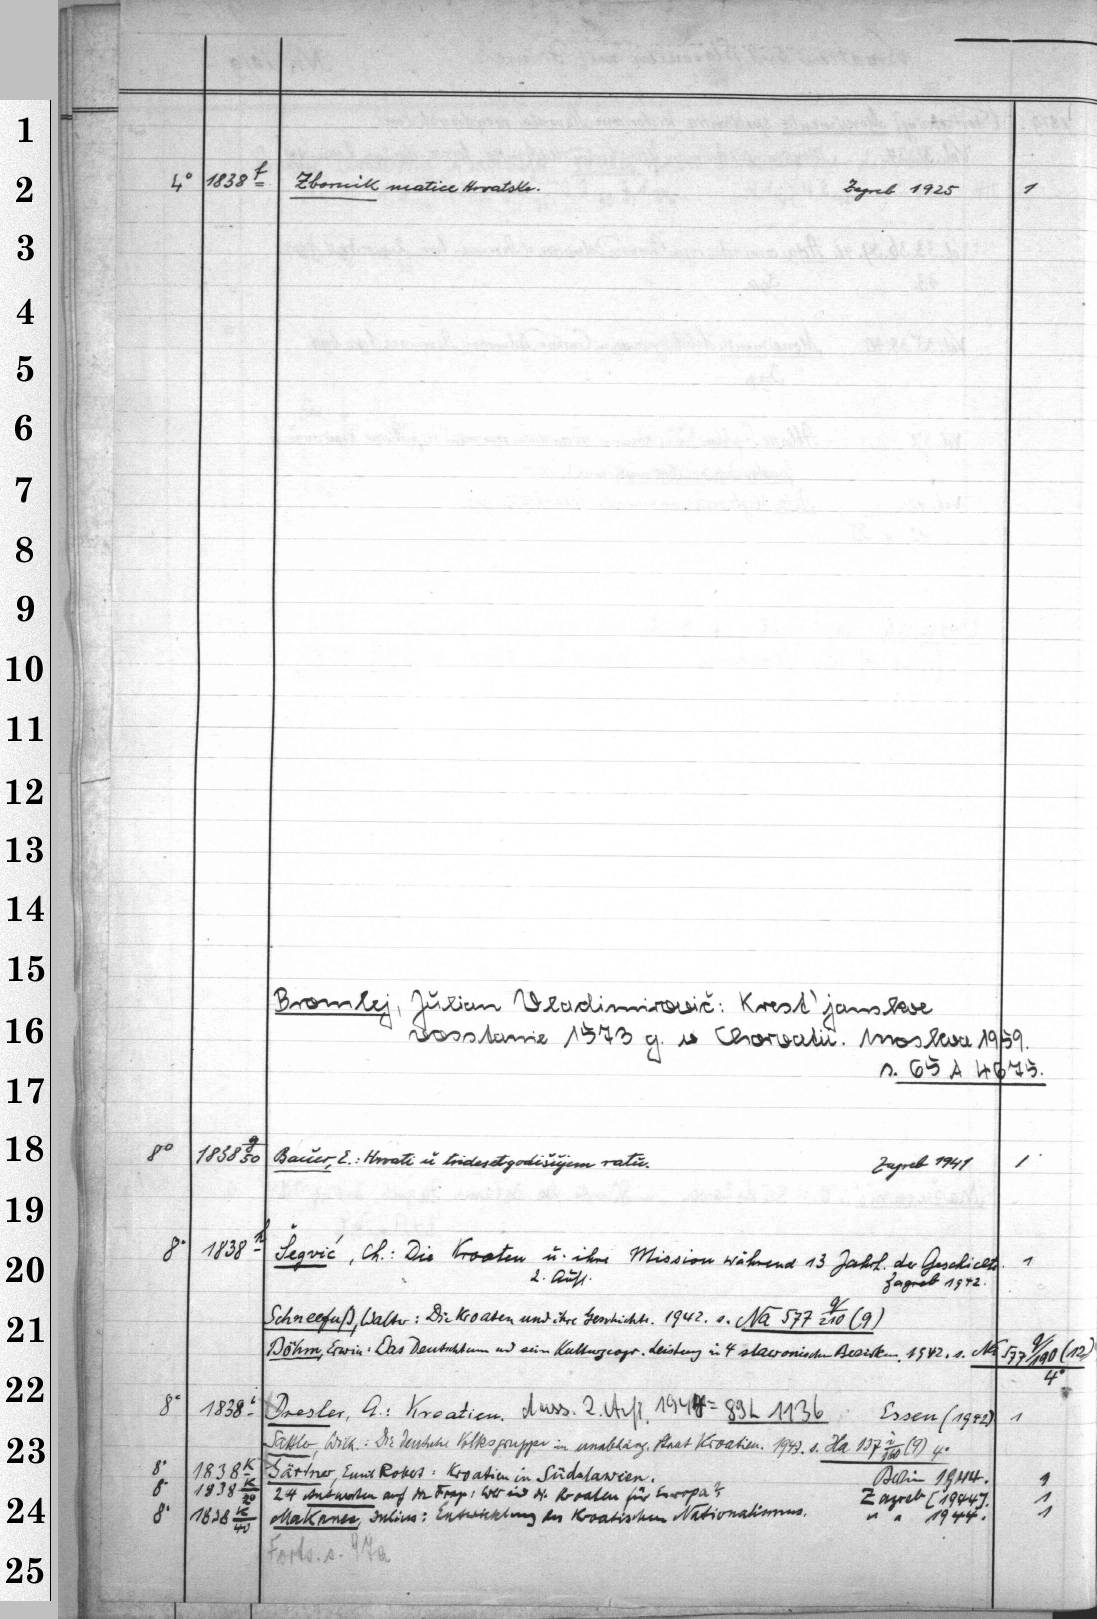 1
2
4° 1838 f Zbornik matice Hrvatske. Zagreb 1925 1
3
4
5
6
7
8
9
10
11
12
13
14
15
Bromlej, Julian Vladimirovič: Krest'janskoe
16
vosstanie 1573 g. v Chorvatii. Moskva 1959.
s. 65 A 4675.
17
18
8° 1838 g/50 Bauer, E.: Hrvati u tridesetgodišnjem ratu. Zagreb 1941 1
19
8° 1838 h Šegvić, Ch.: Die Kroaten u. ihre Mission während 13 Jahrh. der Geschichte. 1
20
2. Aufl. Zagreb 1942.
21
Schneefuß, Walter: Die Kroaten und ihre Geschichte. 1942. s. Na 577 q/210 (9)
Böhm, Erwin: Das Deutschtum und sein Kulturgeogr. Leistung in 4 slawonischen Bezirken. 1942. s. Na 577 q/190 (12)
4°
22
8° 1838 i Dresler, A.: Kroatien. 2. Aufl. 1944 = 89 L 1136 Essen (1942) 1
23
Sattler, Wilh.: Die deutsche Volksgruppe in unabhäng. Staat Kroatien. 1943. s. Ha 137 (9) 4°
8° 1838 K Gärtner, Emil Robert: Kroatien in Südslawien. Berlin 1944. 1
8° 1838 K/20 24 Antworten auf die Frage: Wer sind die Kroaten für Europa? Zagreb [1944]. 1
24
8° 1838 K/40 Makanec, Julius: Entwicklung des Kroatischen Nationalismus. " " 1944. 1
Forts. s. 97a
25